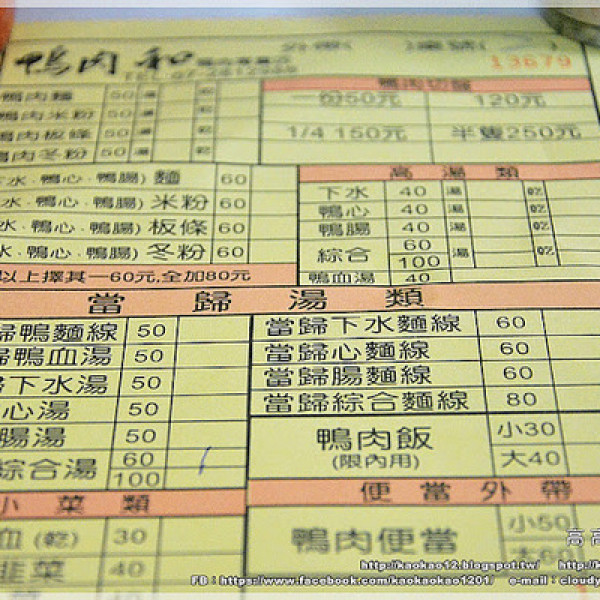 鴨肉和
TEL 07-2612966
外帶( )桌號( )
13679
鴨肉麵 50 湯 乾
鴨肉米粉 50 湯 乾
鴨肉板條 50 湯 乾
鴨肉冬粉 50 湯 乾
鴨肉切盤
一份50元 120元
1/4 150元 半隻250元
下水.鴨心.鴨腸)麵 60
水.鴨心.鴨腸)米粉 60
水.鴨心.鴨腸)板條 60
水.鴨心.鴨腸)冬粉 60
以上擇其一60元,全加80元
高湯類
下水 40 湯 乾
鴨心 40 湯 乾
鴨腸 40 湯 乾
綜合 60 100 湯 乾
鴨血湯 40
當歸湯類
歸鴨麵線 50
歸鴨血湯 50
歸下水湯 50
心湯 50
腸湯 50
綜合湯 60 100
當歸下水麵線 60
當歸心麵線 60
當歸腸麵線 60
當歸綜合麵線 80
鴨肉飯 小30
(限內用) 大40
小菜類
血(乾) 30
韭菜 40
40
便當外帶
鴨肉便當 小50
大60
高高
http://kaokao12.blogspot.tw/
FB:https://www.facebook.com/kaokaokao1201/ e-mail:cloudy